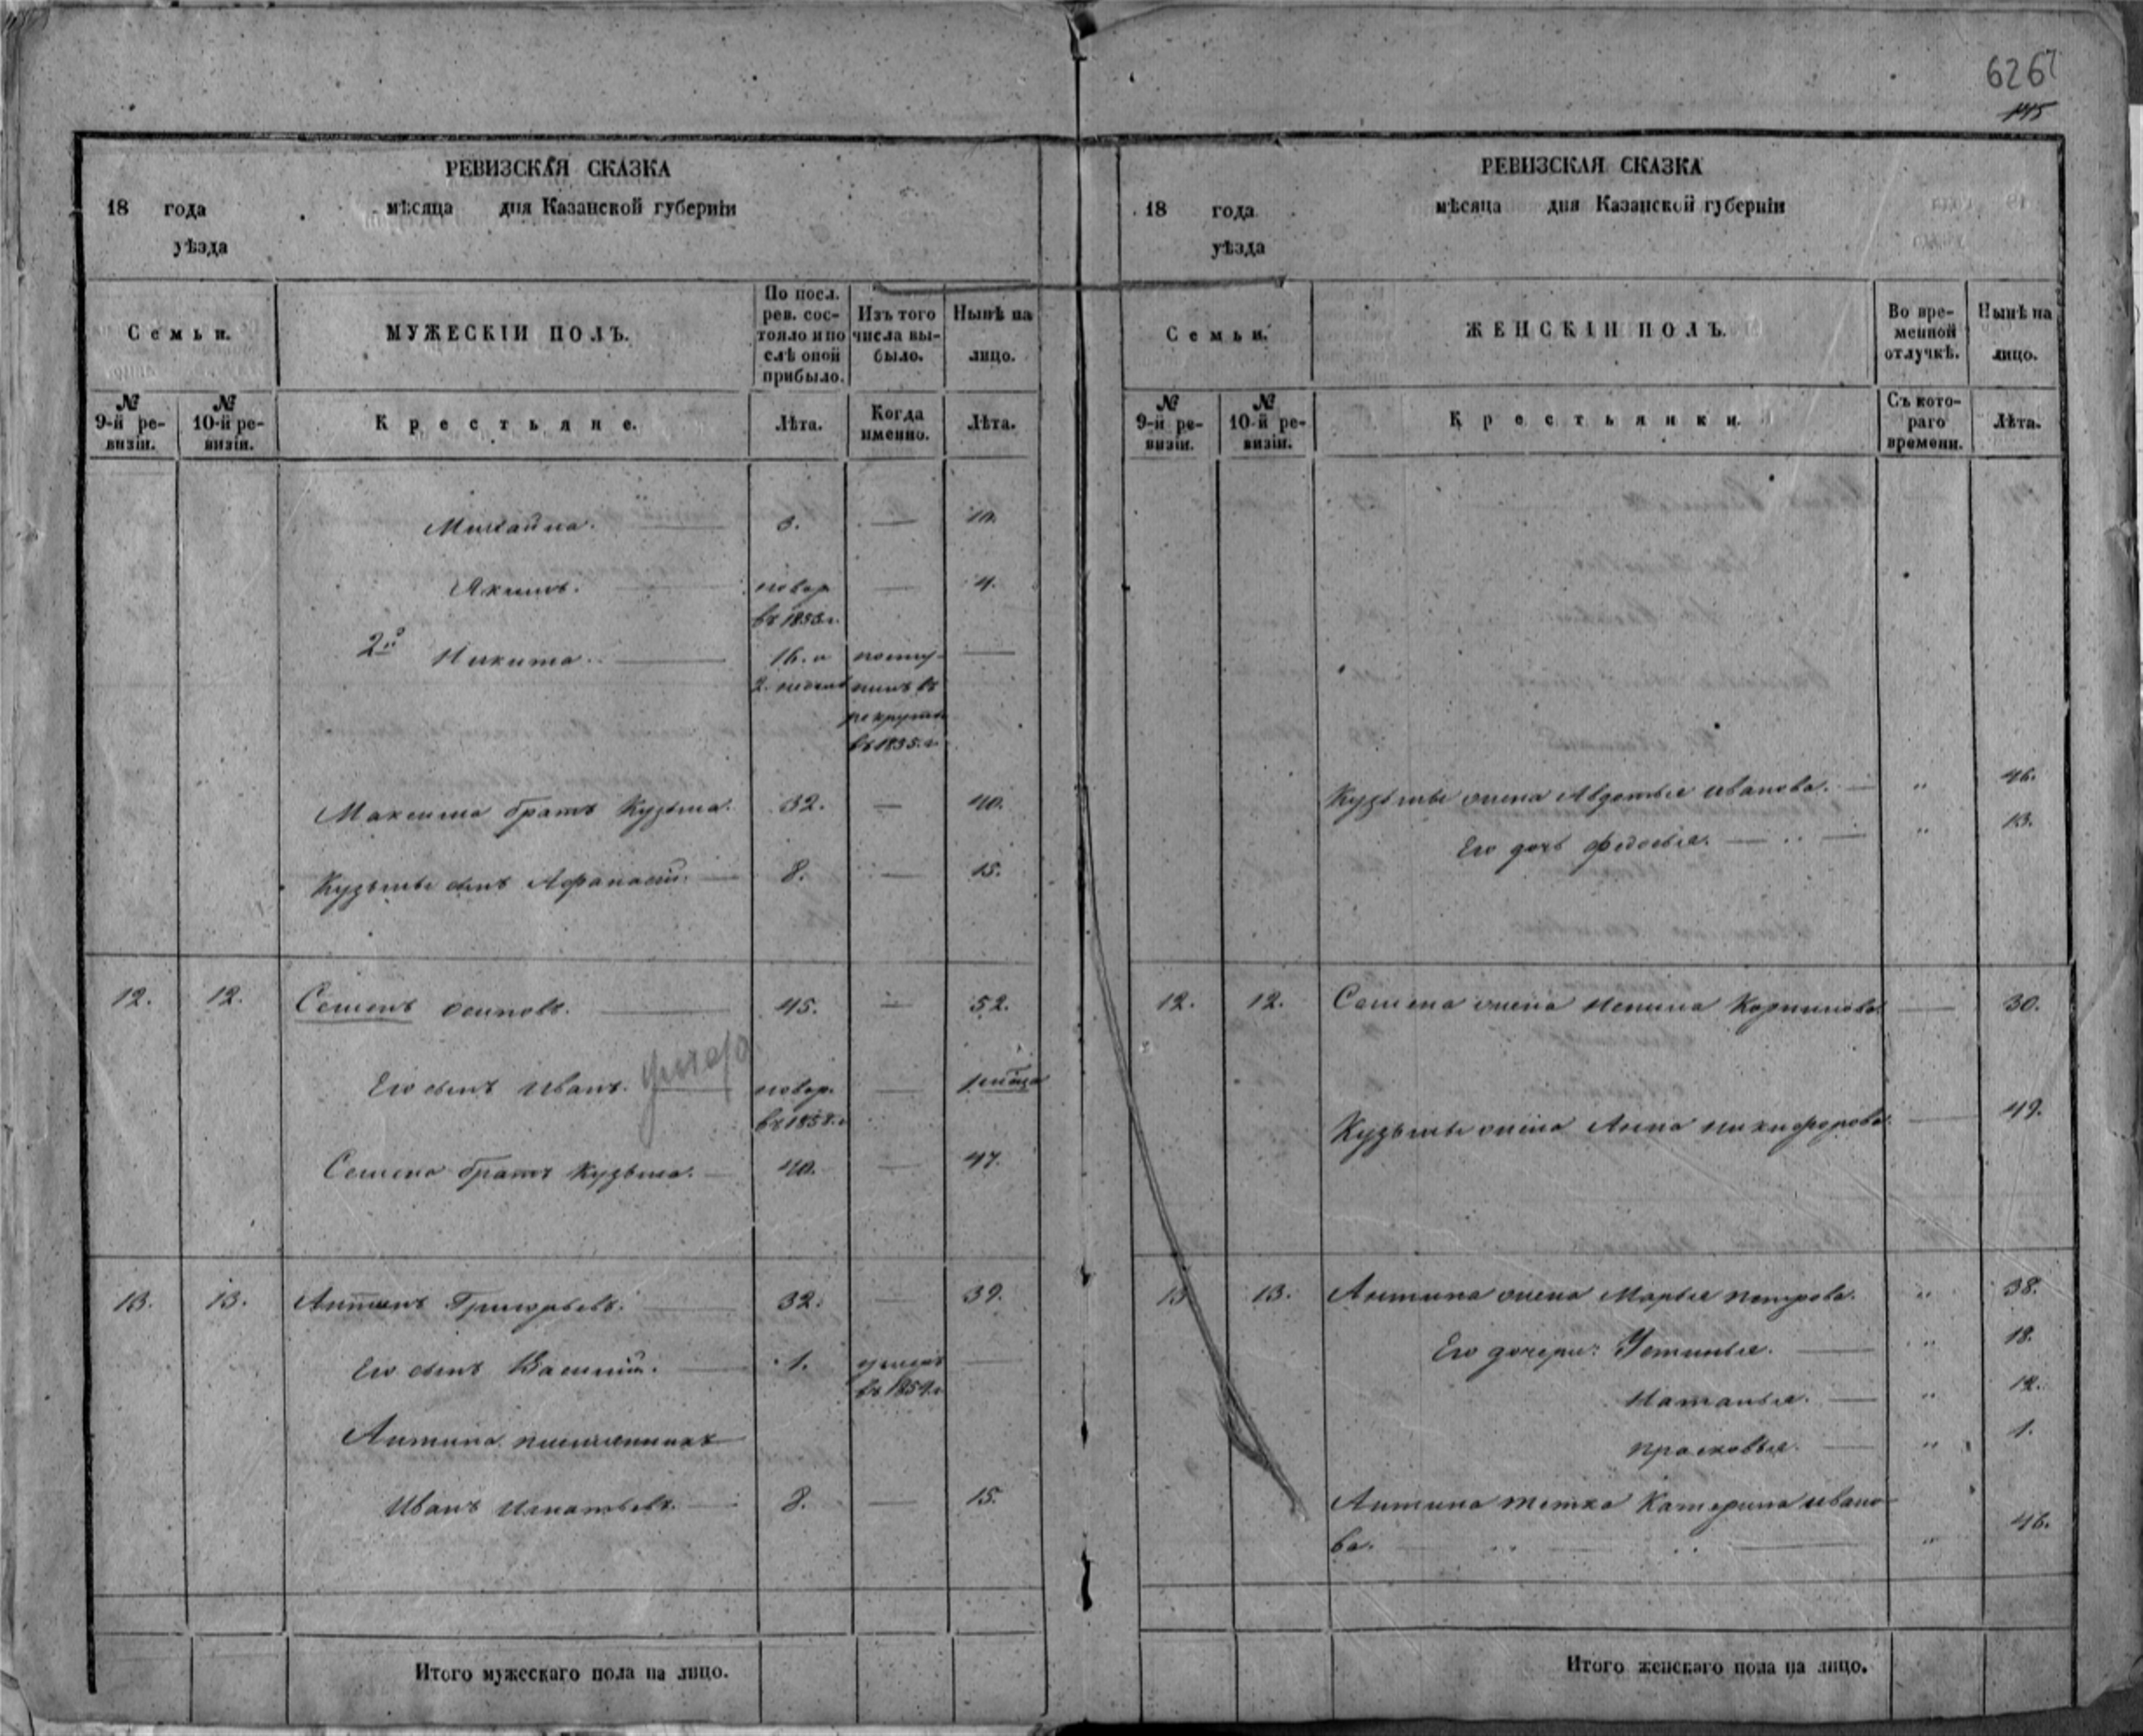 6267
145
РЕВИЗСКАЯ СКАЗКА
18 года мѣсяца дня Казанской губерніи
уѣзда
Семьи.
МУЖЕСКІЙ ПОЛЪ.
По посл. рев. состояло и послѣ оной прибыло.
Изъ того числа выбыло.
Нынѣ на лицо.
№ 9-й ревизіи.
№ 10-й ревизіи.
Крестьяне.
Лѣта.
Когда именно.
Лѣта.
Михайла. 3. — 10.
Якимъ. новор. — 4.
въ 1853 г.
2й Никита. 16. и посту- —
2. недел пилъ въ
рекруты
въ 1835. г.
Максима братъ Кузьма. 32. — 40.
Кузьмы сынъ Афанасій. 8. — 15.
12. 12. Семенъ Осиповъ. 45. — 52.
Его сынъ Иванъ. новор. —
въ 1858. г.
Семена братъ Кузьма. 40. — 47.
13. 13. Антипъ Григорьевъ. 32. — 39.
Его сынъ Василій. 1. умеръ —
въ 1854. г.
Антипа племянникъ
Иванъ Игнатьевъ. 8. — 15.
Итого мужескаго пола на лицо.
РЕВИЗСКАЯ СКАЗКА
18 года мѣсяца дня Казанской губерніи
уѣзда
Семьи.
ЖЕНСКІЙ ПОЛЪ.
Во временной отлучкѣ.
Нынѣ на лицо.
№ 9-й ревизіи.
№ 10-й ревизіи.
Крестьянки.
Съ котораго времени.
Лѣта.
Кузьмы жена Авдотья Иванова. — " 46.
Его дочь Федосья. — " 13.
12. 12. Семена жена Ненила Корнилова — 30.
Кузьмы жена Анна Никифорова — 49.
13 13. Антипа жена Марья Петрова. " 38.
Его дочери: Устинья. — " 18.
Наталья. — " 12.
Прасковья. — " 1.
Антипа тетка Катерина Ивано-
ва. — " 46.
Итого женскаго пола на лицо.